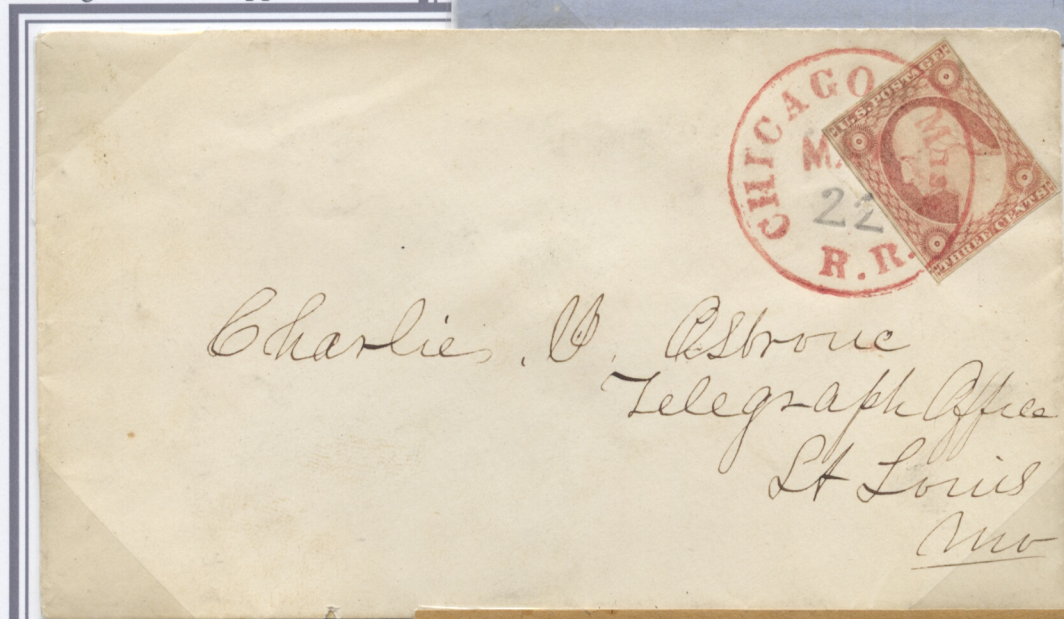 CHICAGO
Miss
MA
22
R.R.
U.S. POSTAGE
THREE CENTS
Charlie
Telegraph Office
St Louis
Mo